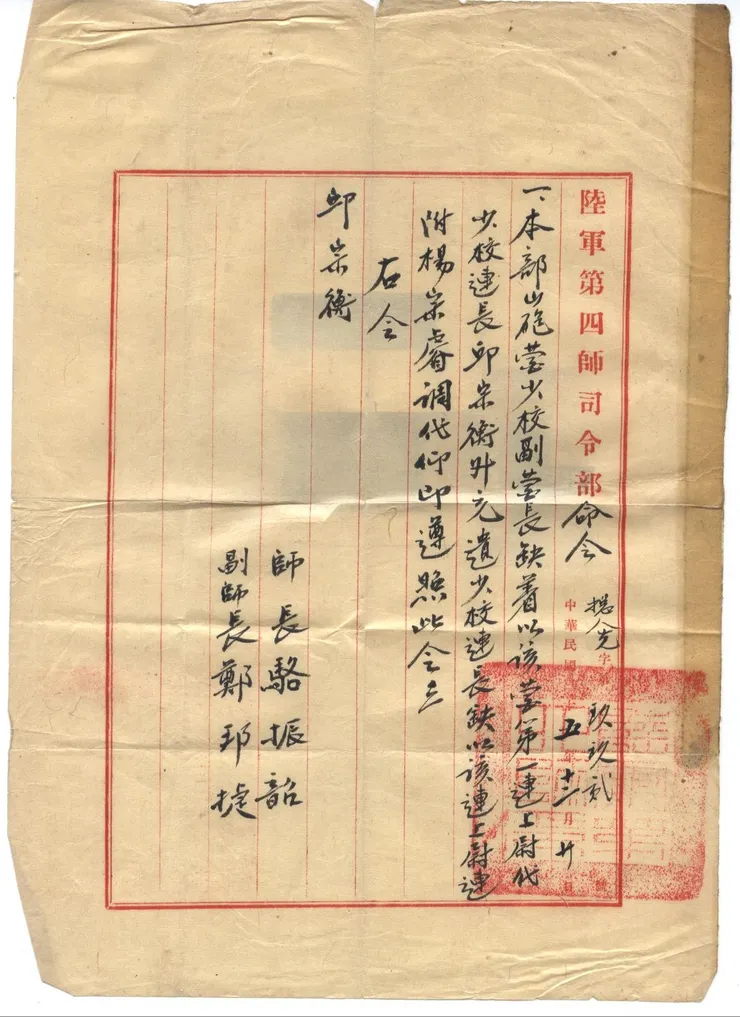 陸軍第四師司令部命令
字
玖玖貳
中華民國 五年十二月廿
一、本部山砲營少校副營長缺着以該營第一連上尉代
少校連長邱宗衡升充遺少校連長缺以該連上尉連
附楊宗睿調代仰即遵照此令
右令
邱宗衡
師長駱振韶
副師長鄭邦捷